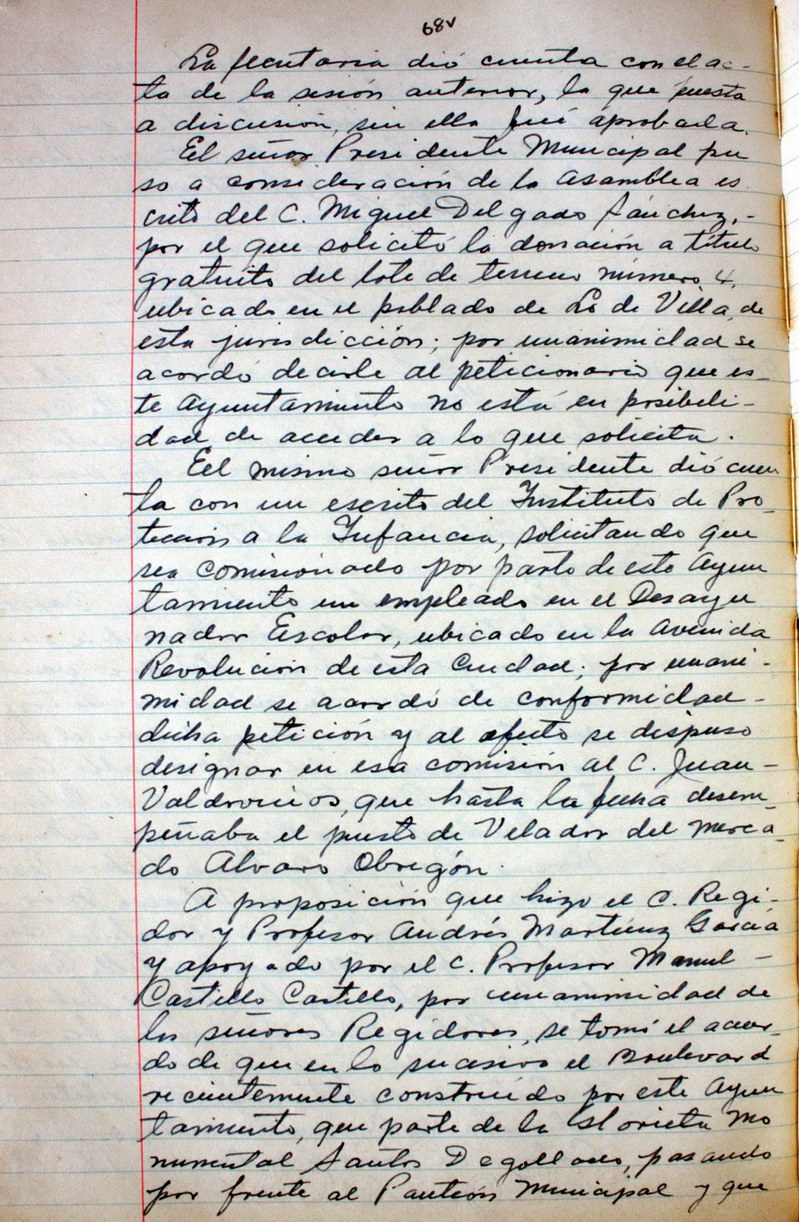 68v
La secretaria dió cuenta con el ac-
ta de la sesión anterior, la que puesta
a discusión, sin ella fué aprobada.
El señor Presidente Municipal pu
so a consideración de la asamblea es
crito del C. Miguel Delgado Sánchez,-
por el que solicitó la donación a título
gratuito del lote de terreno número 4,
ubicado en el poblado de Lo de Villa, de
esta jurisdicción; por unanimidad se
acordó decirle al peticionario que es-
te Ayuntamiento no está en posibili-
dad de acceder a lo que solicita.
El mismo señor Presidente dió cuen
ta con un escrito del Instituto de Pro-
tección a la Infancia, solicitando que
sea comisionado por parte de este Ayun
tamiento un empleado en el Desayu
nador Escolar, ubicado en la Avenida
Revolución de esta Ciudad; por unani-
midad se acordó de conformidad-
dicha petición y al efecto se dispuso
designar en esa comisión al C. Juan-
Valdovinos, que hasta la fecha desem-
peñaba el puesto de Velador del merca-
do Alvaro Obregón.
A proposición que hizo el C. Regi-
dor y Profesor Andrés Martínez García
y apoyado por el C. Profesor Manuel-
Castillo Castillo, por unanimidad de
los señores Regidores, se tomó el acuer-
do de que en lo sucesivo el Boulevard
recientemente construído por este Ayun
tamiento, que parte de la Glorieta Mo
numental Santos Degollado, pasando
por frente al Panteón Municipal y que